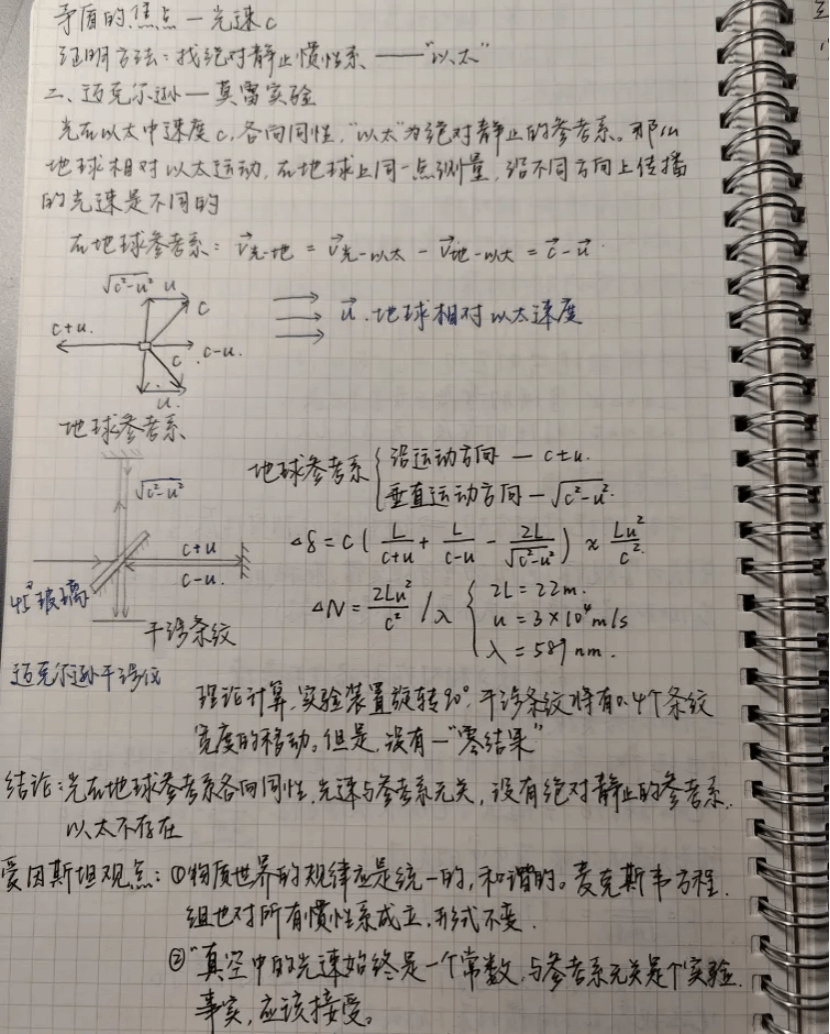 矛盾的焦点—光速c
证明方法:找绝对静止惯性系——"以太"
二、迈克尔逊—莫雷实验
光在以太中速度c,各向同性,"以太"为绝对静止的参考系。那么
地球相对以太运动,在地球上同一点测量,沿不同方向上传播
的光速是不同的
在地球参考系:v⃗光-地 = v⃗光-以太 - v⃗地-以太 = c⃗-u⃗
√c²-u² u
c
c+u.
c-u.
c
u.
u⃗.地球相对以太速度
地球参考系
地球参考系{沿运动方向 — c±u.
垂直运动方向 — √c²-u².
√c²-u²
c+u
c-u.
45°玻璃
干涉条纹
迈克尔逊干涉仪
Δδ = c( L/(c+u) + L/(c-u) - 2L/√c²-u² ) ≈ Lu²/c².
ΔN = 2Lu²/c² /λ { 2L = 22m.
u = 3×10⁴m/s
λ = 589nm.
理论计算,实验装置旋转90°,干涉条纹将有0.4个条纹
宽度的移动。但是,没有—"零结果"
结论:光在地球参考系各向同性,光速与参考系无关,没有绝对静止的参考系.
以太不存在
爱因斯坦观点:①物质世界的规律应是统一的,和谐的。麦克斯韦方程.
组也对所有惯性系成立,形式不变.
②"真空中的光速始终是一个常数,与参考系无关是个实验.
事实,应该接受。